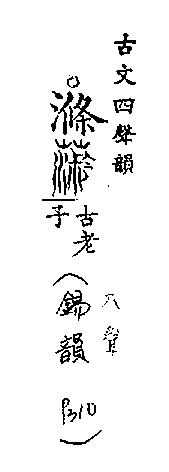 古文四聲韻
滌
古老子
入聲
(錫韻
P310)